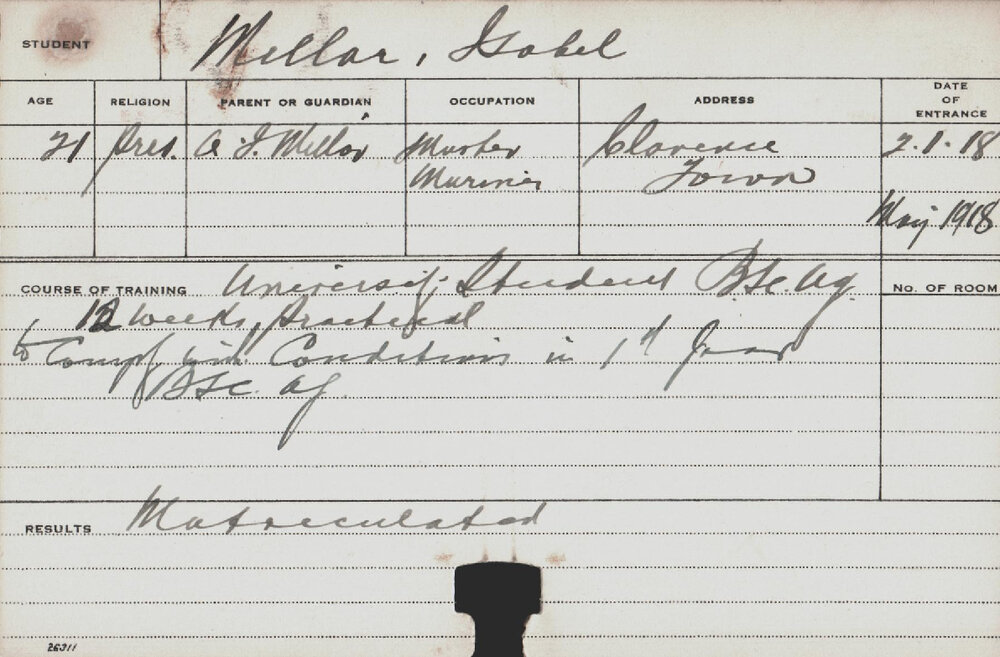 STUDENT Millar, Isobel
AGE RELIGION PARENT OR GUARDIAN OCCUPATION ADDRESS DATE OF ENTRANCE
21 Pres. A. J. Millar Master Clarence 2.1.18
Mariner Town
May 1918
COURSE OF TRAINING University Student B.Sc. Ag. No. OF ROOM
12 weeks, Practical
to Comply with Conditions in 1st Year
BSc. Ag.
RESULTS Matriculated
26311